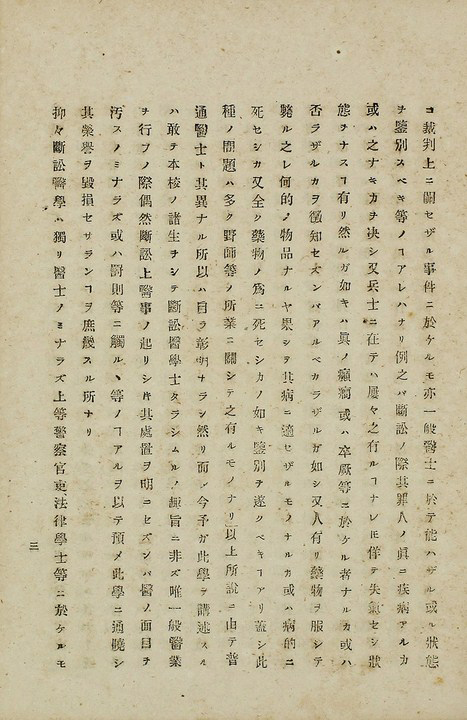 ヿ裁判上ニ關セザル事件ニ於ケルモ亦一般醫士ニ於テ能ハザル或ル狀態
ヲ鑒別スベキ等ノヿアレハナリ例之バ斷訟ノ際其罪人ノ眞ニ疾病アルカ
或ハ之ナキカヲ决シ又兵士ニ在テハ屢々之有ルヿナレ𪜈佯テ失氣セシ狀
態チナスヿ有リ然ルガ如キハ眞ノ癲癇或ハ卒厥等ニ於ケル者ナルカ或ハ
否ラザルカヲ徵知セズンバアルベカラザルガ如シ又人有リ藥物ヲ服シテ
斃ル之レ何的ノ物品ナルヤ果シヲ其病ニ適セザルモノナルカ或ハ病的ニ
死セシカ又全ク藥物ノ爲ニ死セシカノ如キ鑒別ヲ遂クベキヿアリ蓋シ此
種ノ問題ハ多ク野師等ノ所業ニ關シテ之有ルモノナリ以上所說ニ由テ普
通醫士ト其異ナル所以ハ自ラ彰明ナラシ然リ而ノ今予ガ此學ヲ講述スル
ハ敢テ本校ノ諸生ヲシテ斷訟醫學士タラシムルノ趣旨ニ非ズ唯一般醫業
ヲ行フノ際偶然斷訟上醫事ノ起リシ𪜈其處置ヲ明ニセズンバ醫ノ面目ヲ
汚スノミナラズ或ハ罰則等ニ觸ルヽ等ノヿアルヲ以テ預メ此學ニ通曉シ
其榮譽ヲ毀損セサランヿヲ庶幾スル所ナリ
抑々斷訟醫學ハ獨リ醫士ノミナラズ上等警察官吏法律學士等ニ於ケルモ
三